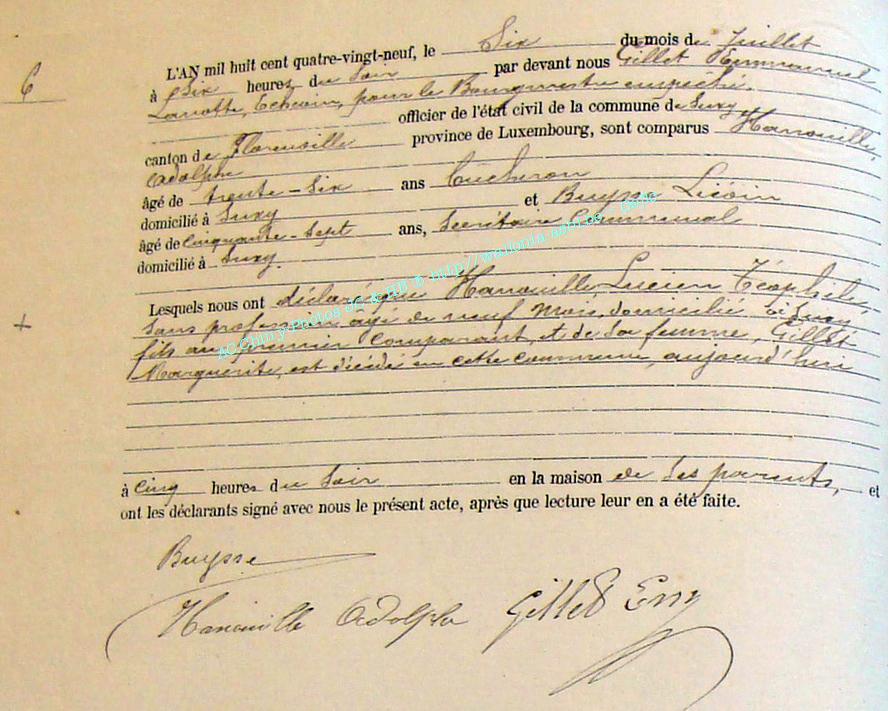 6
L'AN mil huit cent quatre-vingt-neuf, le Six du mois de Juillet
à Six heures du Soir par devant nous Gillet Emmanuel
Lanotte, Echevin, pour le Bourgmestre empêché.
officier de l'état civil de la commune de Suxy
canton de Florenville province de Luxembourg, sont comparus Hanouille,
Adolphe
âgé de trente-Six ans Bucheron
domicilié à Suxy et Buysse
âgé de cinquante-Sept ans, Secrétaire Communal
domicilié à Suxy.
Lesquels nous ont déclaré que Hanouille, Lucien Téophile,
Sans profession agé de neuf mois, domicilié à Suxy,
fils au premier comparant, et de Sa femme, Gillet
Marguerite, est décédé en cette commune, aujourd'hui
à cinq heures du Soir en la maison de Ses parents, et
ont les déclarants signé avec nous le présent acte, après que lecture leur en a été faite.
Buysse
Hanouille Adolphe Gillet